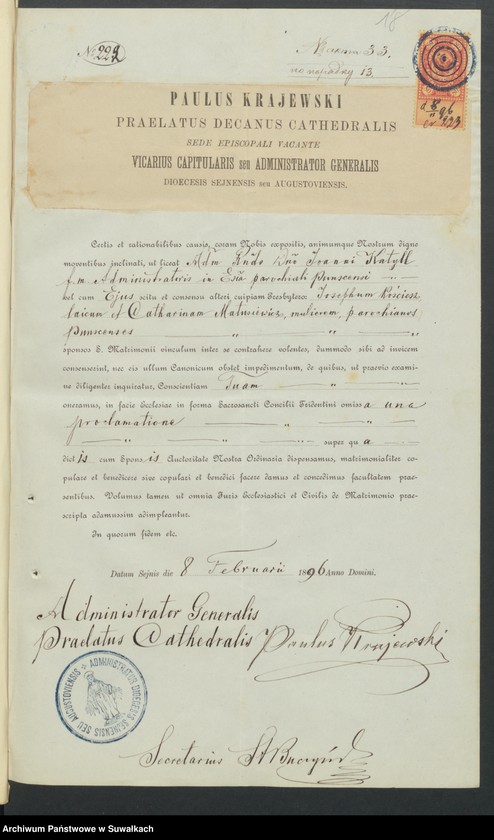 18
№ 229
33.
13.
d 8/II 96
№ 229
PAULUS KRAJEWSKI
PRAELATUS DECANUS CATHEDRALIS
SEDE EPISCOPALI VACANTE
VICARIUS CAPITULARIS seu ADMINISTRATOR GENERALIS
DIOECESIS SEJNENSIS seu AUGUSTOVIENSIS.
Certis et rationabilibus causis, coram Nobis expositis, animumque Nostrum digne
moventibus inclinati, ut liceat Adm Rndo Dno Joanni Katyll
f.m. Administratoris in Eccla parochiali punscensi
vel cum Ejus scitu et consensu alteri cuipiam Presbytero: Josephum
laicum et Catharinam Matusiewicz, mulierem, parochianos
punscenses
sponsos S. Matrimonii vinculum inter se contrahere volentes, dummodo sibi ad invicem
consenserint, nec eis ullum Canonicum obstet impedimentum, de quibus, ut praevio exami-
ne diligenter inquiratur, Conscientiam Tuam
oneramus, in facie Ecclesiae in forma Sacrosancti Concilii Tridentini omissa una
proclamatione
super qua
dictis cum Sponsis Auctoritate Nostra Ordinaria dispensamus, matrimonialiter co-
pulare et benedicere sive copulari et benedici facere damus et concedimus facultatem prae-
sentibus. Volumus tamen ut omnia Juris Ecclesiastici et Civilis de Matrimonio prae-
scripta adamussim adimpleantur.
In quorum fidem etc.
Datum Sejnis die 8 Februarii 1896 Anno Domini.
Administrator Generalis
Praelatus Cathedralis Paulus Krajewski
ADMINISTRATOR DIOECESIS SEJNENSIS SEU AUGUSTOVIENSIS
Secretarius
Archiwum Państwowe w Suwałkach